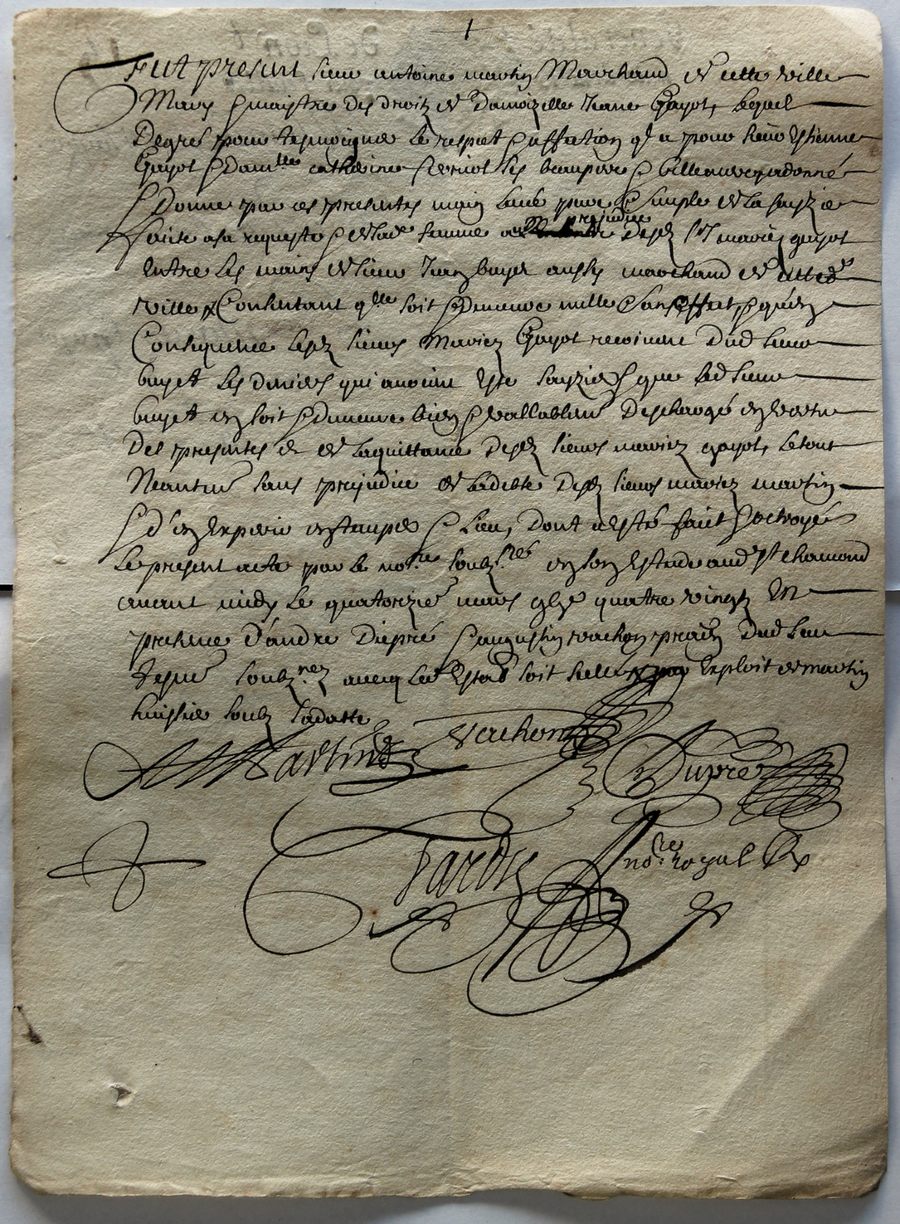 Fut present sieur antoine martin Marchand de cette ville
Mary & maistre des droitz de Damoizelle Jeanne Gayot, Lequel
Degré pour tesmoigner le respet & affection qu'il a pour sieur Estienne
Gayot & Dam.lle catherine ses beaupere & bellemere a donné
& Donne par ces presentes main levée pure & simple de la sayzie
faicte a sa requeste & de lad. femme prejudice Desd. maries gayot
Entre les mains de sieur Jean buyet aussy marchand de cetted.
ville, Consentant qu'elle soit & demeure nulle & sans effect & qu'en
Consequence lesd. sieurs Mariez Gayot retirent dud. sieur
buyet les deniers qui avoient esté sayzies & que led. sieur
buyet en soit & demeure bien & vallablem. deschargé en vertu
Des presentes & de la quittance desd. sieurs mariez gayot, le tout
Neantm. sans prejudice de la debte desd. sieurs mariez martin
& d'en en temps & lieu, Dont a esté faict & octroyé
Le present acte par le not.re soubz.né en son Estude aud. S.t chamond
avant midy le quatorzie. mars quatre vingtz En
presence d'andré Dupré & augustin vachon dud. lieu
tesm. soubz.nez avecq led. soit par Exploit de martin
huissier soubz sa datte
Martin
vachon
Dupré
Tardy
no.re royal